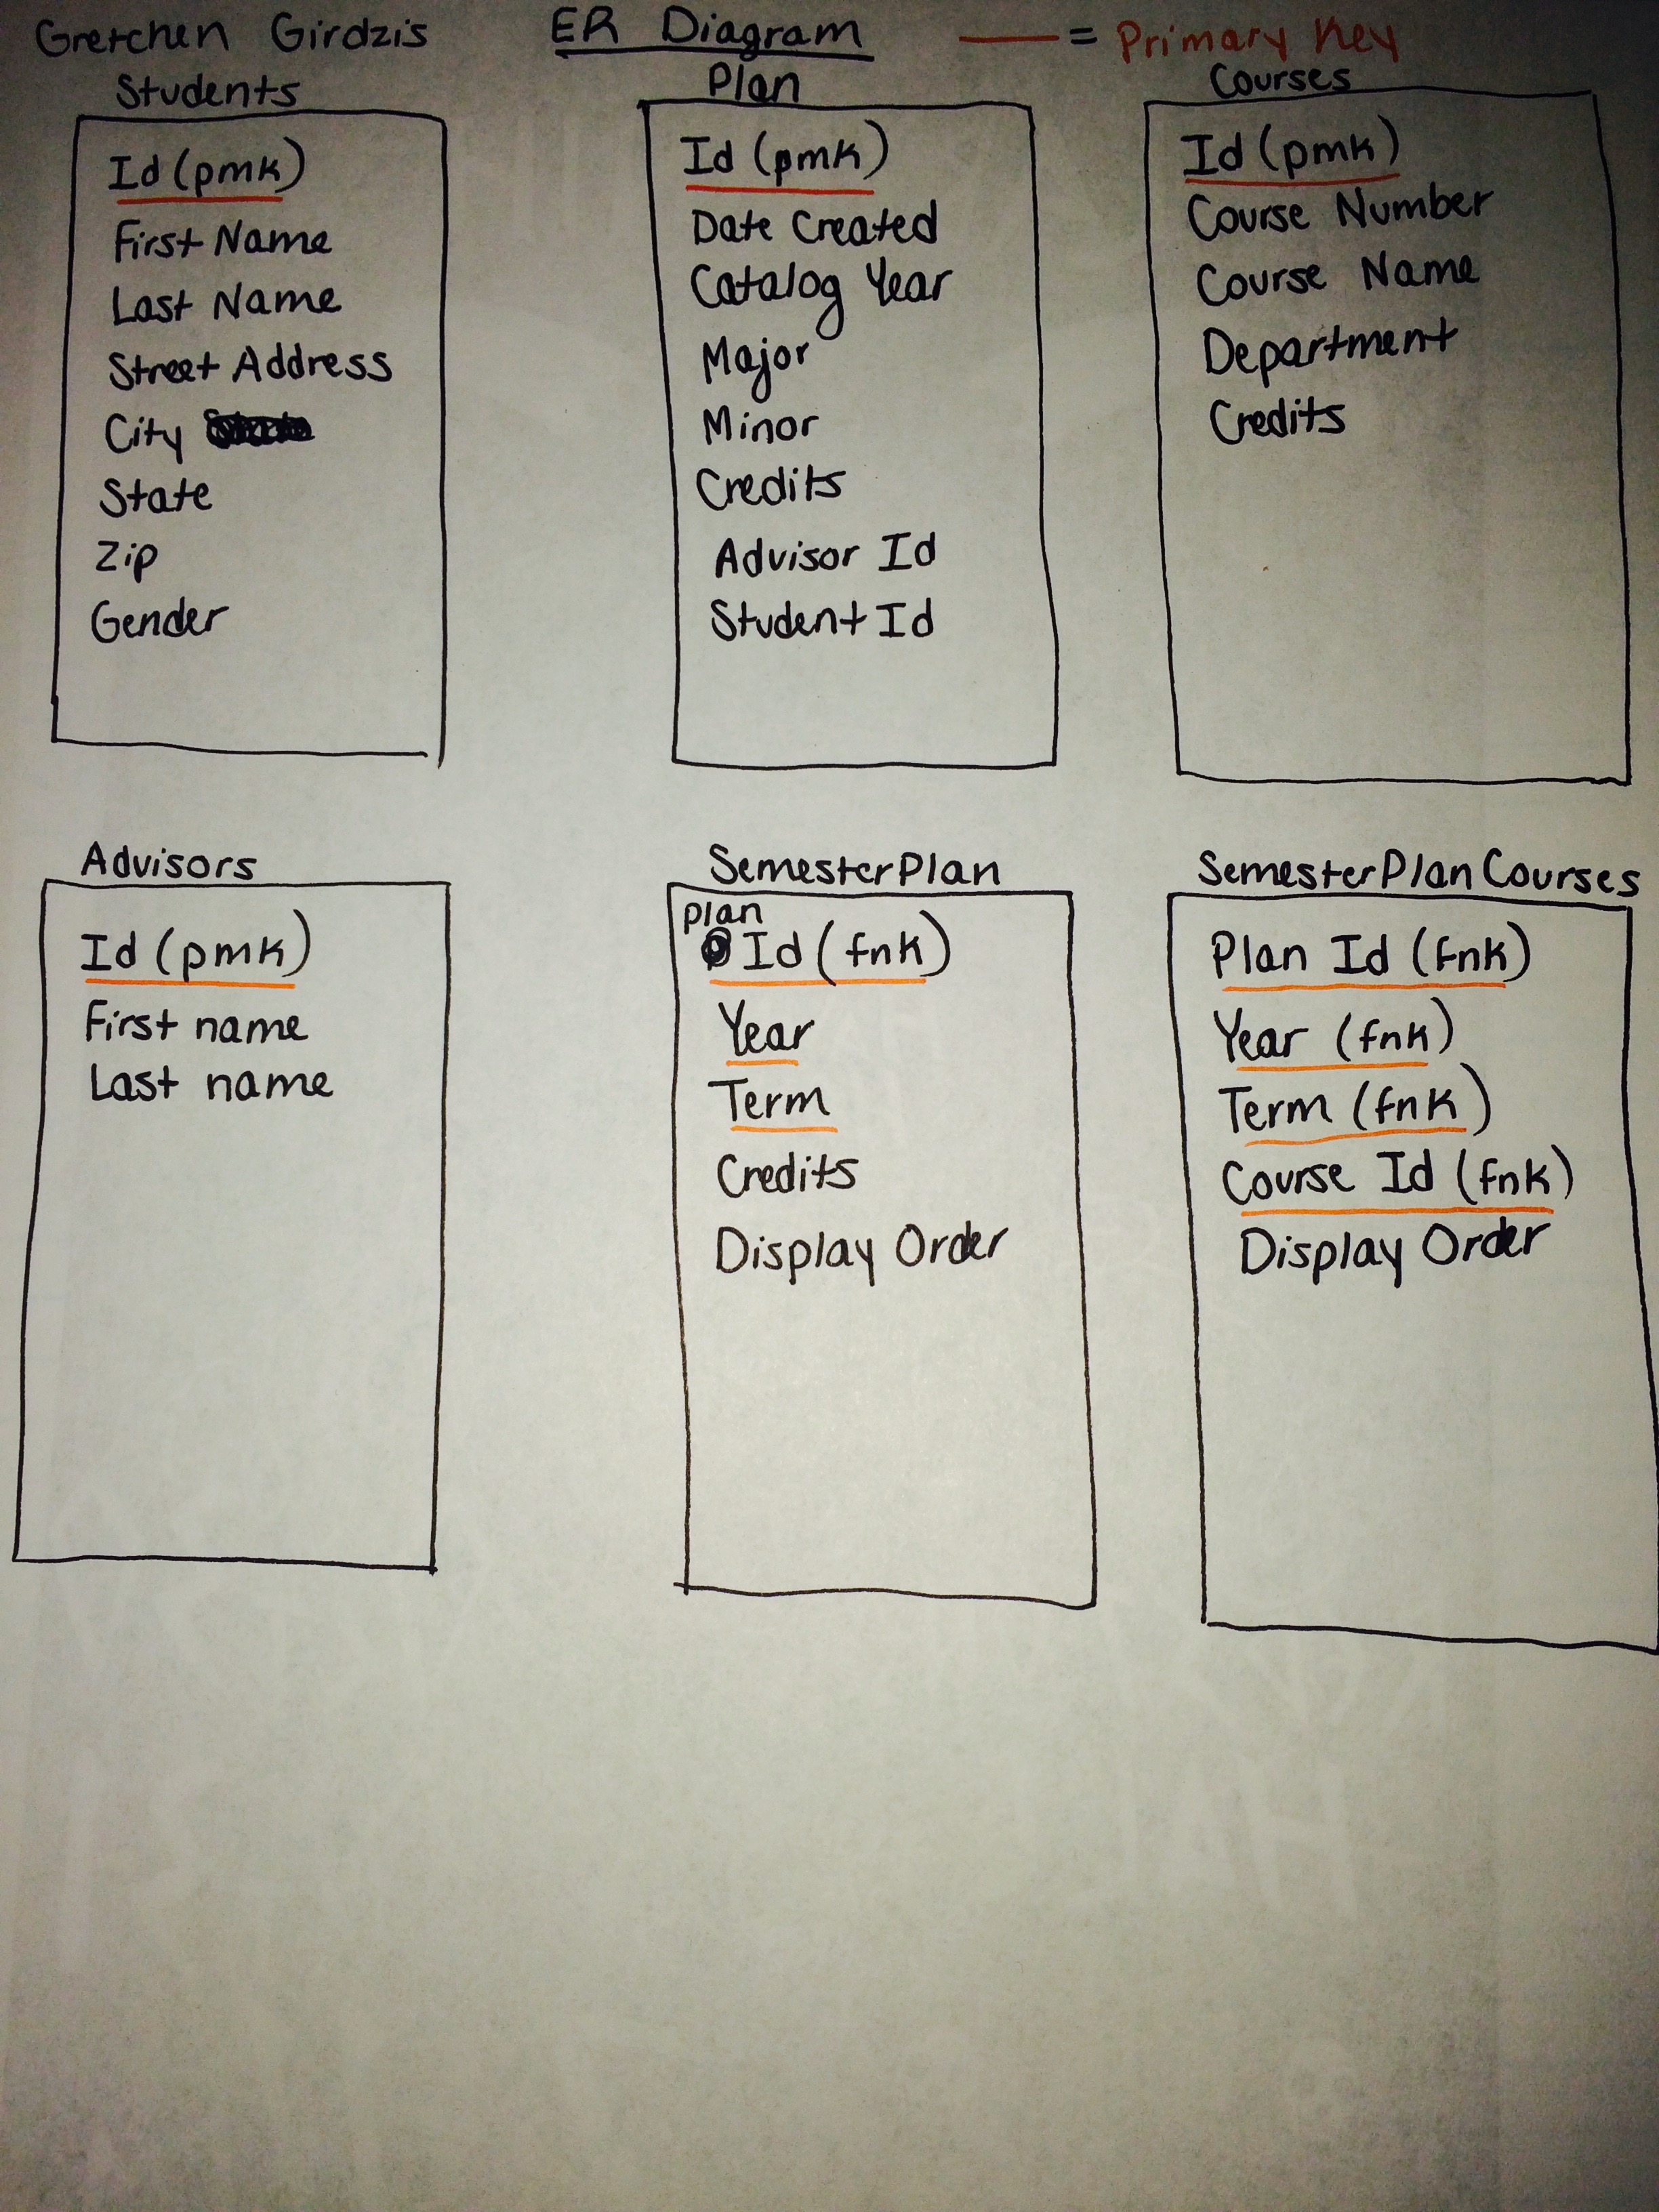 Gretchen Girdzis
ER Diagram
= Primary Key
Students
Id (pmk)
First Name
Last Name
Street Address
City
State
Zip
Gender
Plan
Id (pmk)
Date Created
Catalog Year
Major
Minor
Credits
Advisor Id
Student Id
Courses
Id (pmk)
Course Number
Course Name
Department
Credits
Advisors
Id (pmk)
First name
Last name
SemesterPlan
plan
Id (fnk)
Year
Term
Credits
Display Order
SemesterPlanCourses
Plan Id (fnk)
Year (fnk)
Term (fnk)
Course Id (fnk)
Display Order